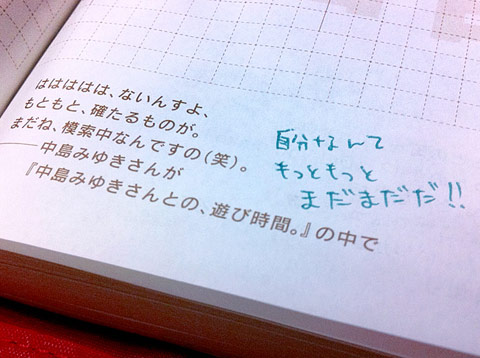 はははははは、ないんすよ、
もともと、確たるものが。
まだね、模索中なんですの(笑)。
──中島みゆきさんが
『中島みゆきさんとの、遊び時間。』の中で
自分なんて
もっともっと
まだまだだ!!